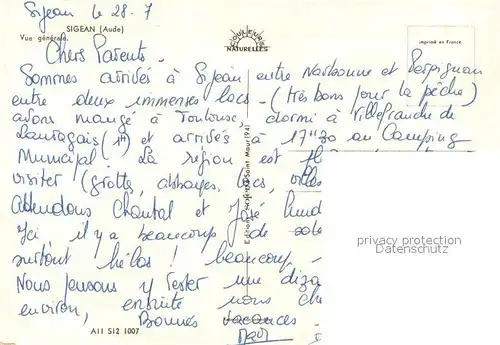 Sigean le 28.7
SIGEAN (Aude)
Vue générale.
COULEURS NATURELLES
imprimé en France
Chers Parents.
Sommes arrivés à Sigean entre Narbonne et Perpignan
entre deux immenses lacs. (très bons pour la pêche)
avons mangé à Toulouse, dormi à Villefranche de
Lauragais (1n) et arrivés à 17h30 au Camping
Municipal. La région est
visiter (grottes, abbayes, lacs, villes
Attendons Chantal et José lund
Ici il y a beaucoup de sole
surtout hélas! beaucoup
Nous pensons y rester une diza
environ, ensuite nous che
Bonnes vacances
Editions Saint Maur (94)
All S12 1007
physical copyright protection
Datenschutz